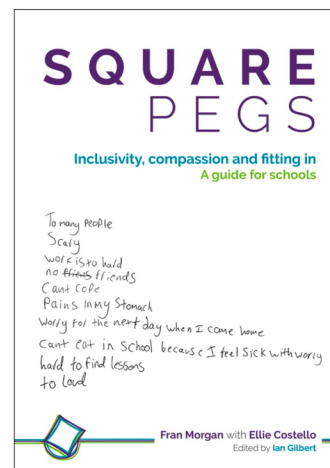 SQUARE
PEGS
Inclusivity, compassion and fitting in
A guide for schools
To many PeoPle
Scary
work is to hard
no friends
Cant CoPe
Pains in my Stomach
Worry for the next day when I come home
Cant eat in School because I feel Sick with worry
hard to find lessons
to loud
Fran Morgan with Ellie Costello
Edited by Ian Gilbert